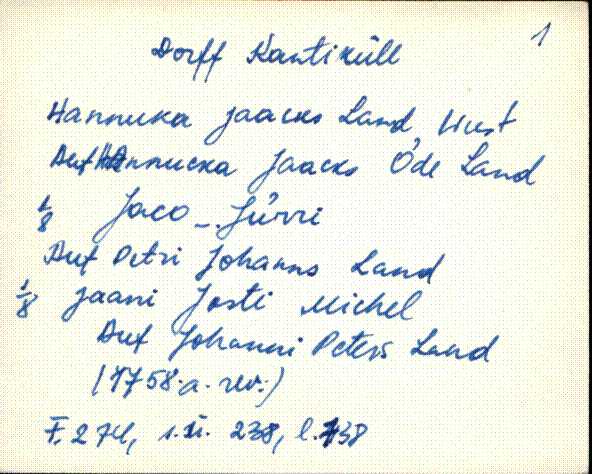 1
Dorff Kantiküll
Hannuka Jaacks Land Wust
Auf Hannucka Jaacks Öde Land
1/8 Jaco - Jürri
Auf Petri Johanns Land
1/8 Jaani Josti Michel
Auf Johanni Peters Land
(1758. a. rev.)
F. 274, s.ü. 238, l. 138